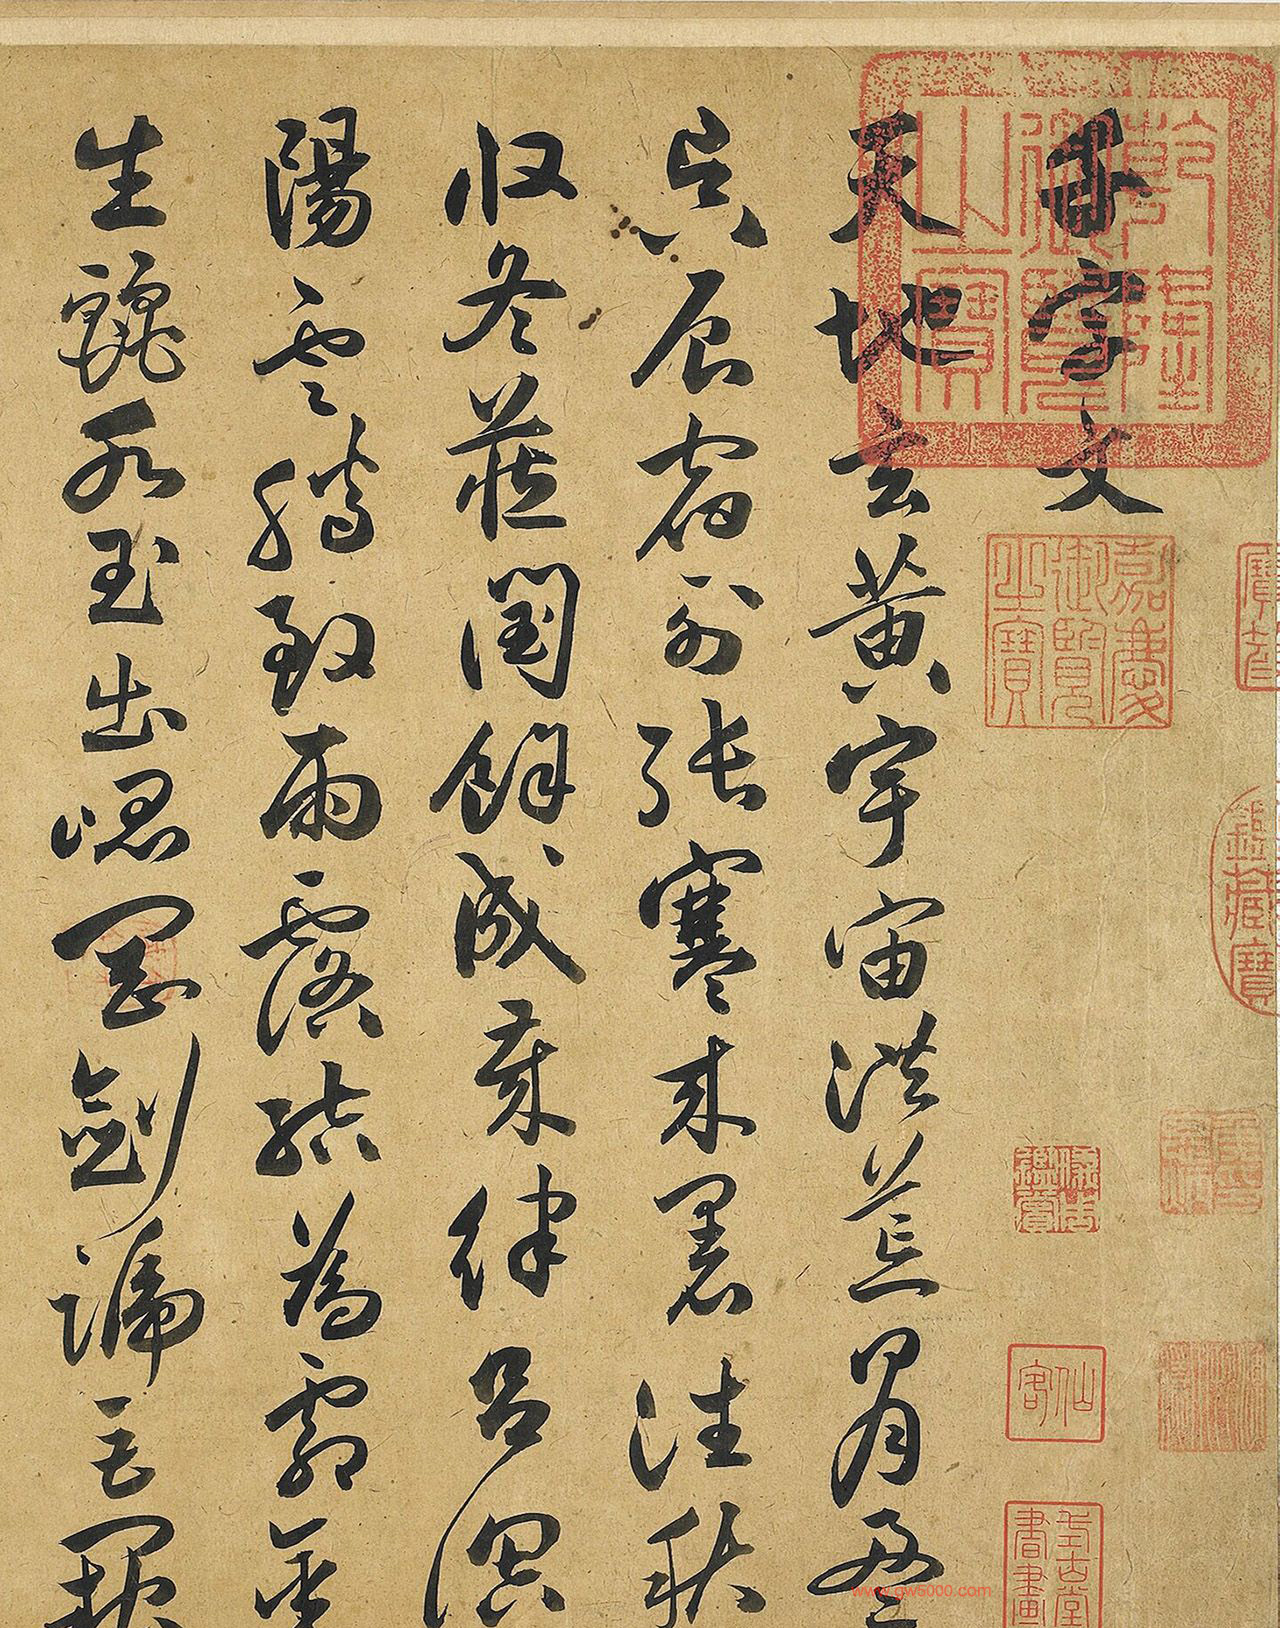 千字文
天地玄黃宇宙洪荒日月盈
昃辰宿列張寒来暑往秋
収冬藏閏餘成歲律呂調
陽雲騰致雨露結為霜金
生麗水玉出崑岡劍號巨闕
乾隆御覽之寶
嘉慶御覽之寶
鑑藏寶
仙客
www.gw5000.com